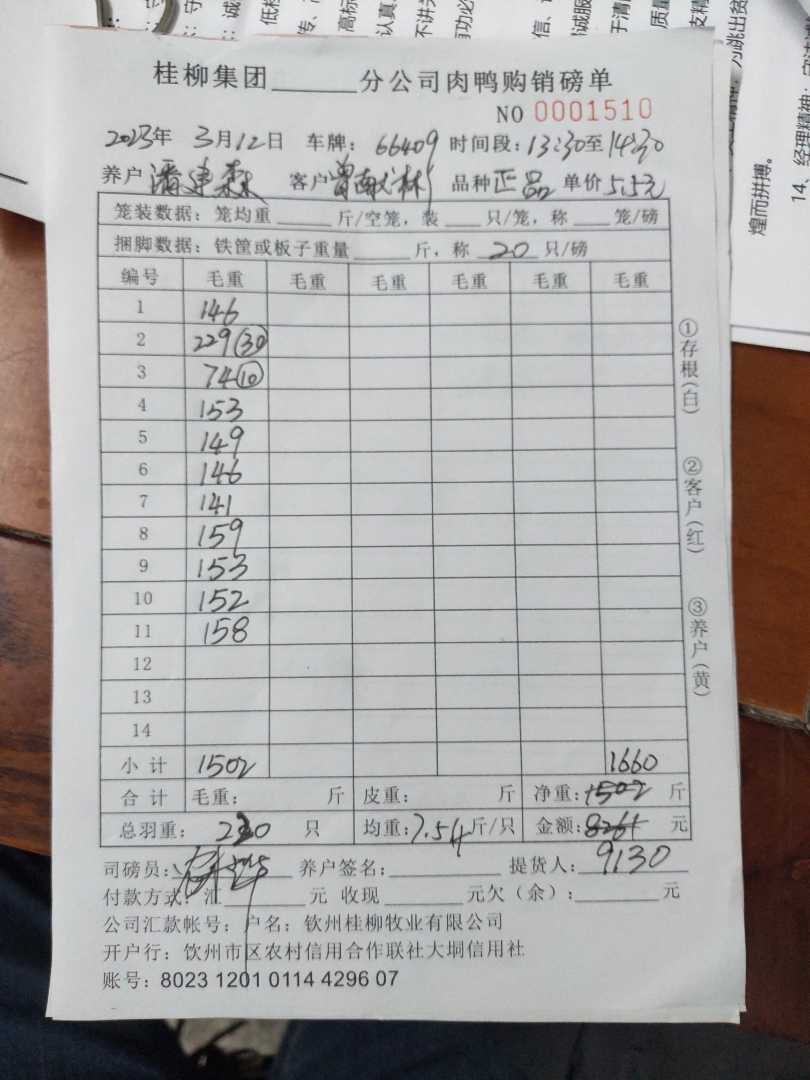 桂柳集团______分公司肉鸭购销磅单
NO 0001510
2023年 3月12日 车牌: 66409 时间段: 13:30至14:30
养户 潘建森 客户 品种 正品 单价 5.5元
笼装数据: 笼均重______斤/空笼, 装____只/笼, 称____笼/磅
捆脚数据: 铁筐或板子重量______斤, 称 20 只/磅
编号 毛重 毛重 毛重 毛重 毛重 毛重
1 146
2 229(30)
3 74(10)
4 153
5 149
6 146
7 141
8 159
9 153
10 152
11 158
12
13
14
小计 1502 1660
合计 毛重: 斤 皮重: 斤 净重: 1502 斤
总羽重: 220 只 均重: 7.54斤/只 金额: 8261 元
司磅员: 养户签名:__________ 提货人: 9130
付款方式: 汇________元 收现________元欠(余):________元
公司汇款帐号: 户名: 钦州桂柳牧业有限公司
开户行: 钦州市区农村信用合作联社大垌信用社
账号: 8023 1201 0114 4296 07
①存根(白)
②客户(红)
③养户(黄)
煌而拼搏。